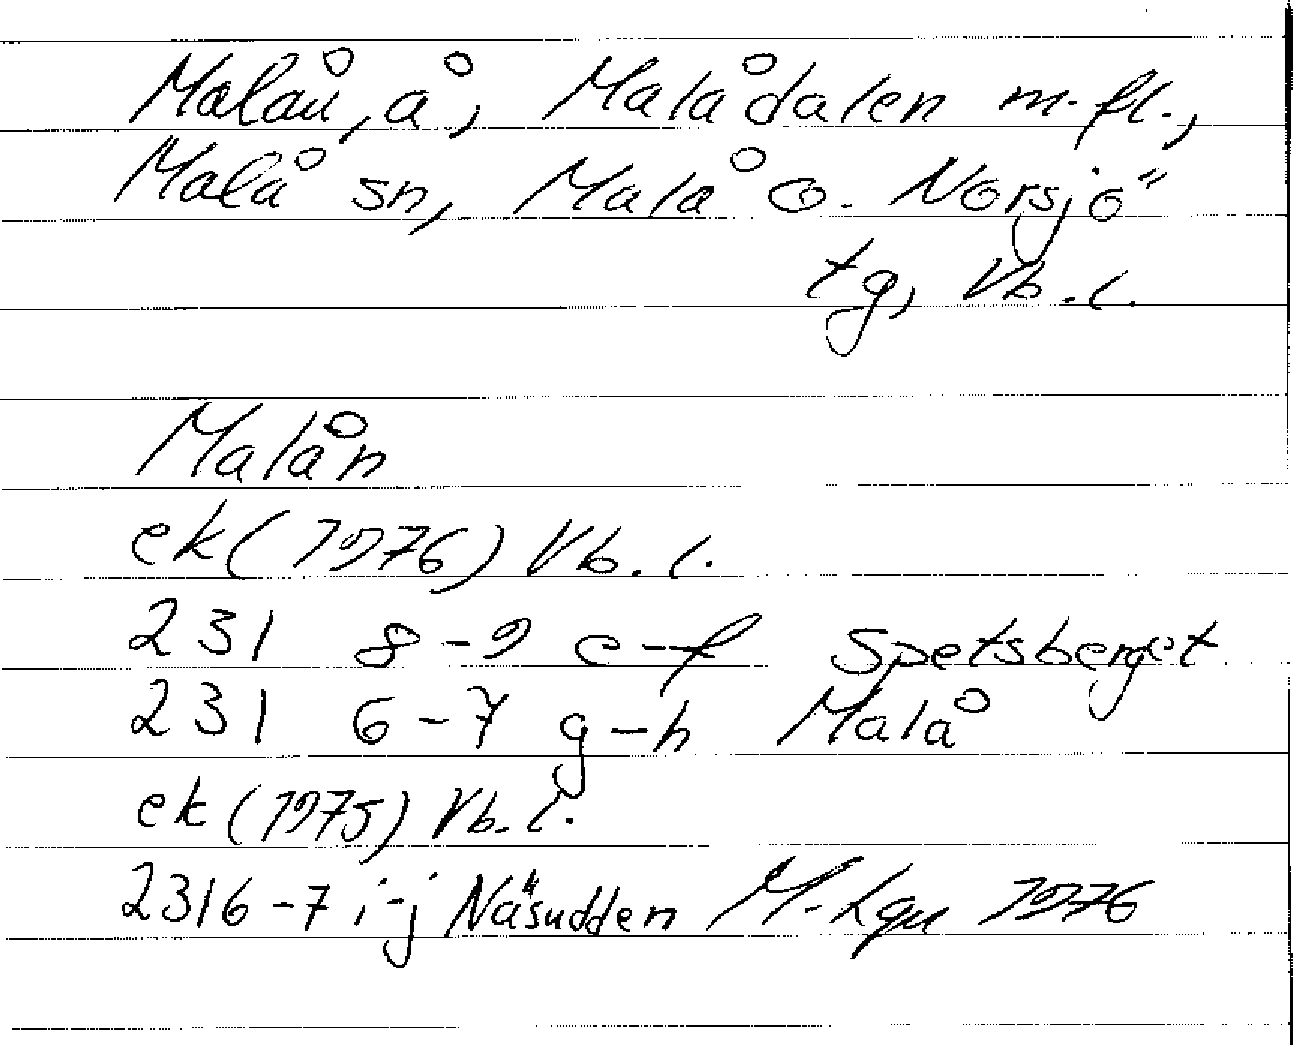 Malån, å, Malådalen m.fl.,
Malå sn, Malå o. Norsjö
tg, Vb.l.
Malån
ek (1976) Vb.l.
231 8-9 e-f Spetsberget
231 6-7 g-h Malå
ek (1975) Vb.l.
231 6-7 i-j Näsudden 1976